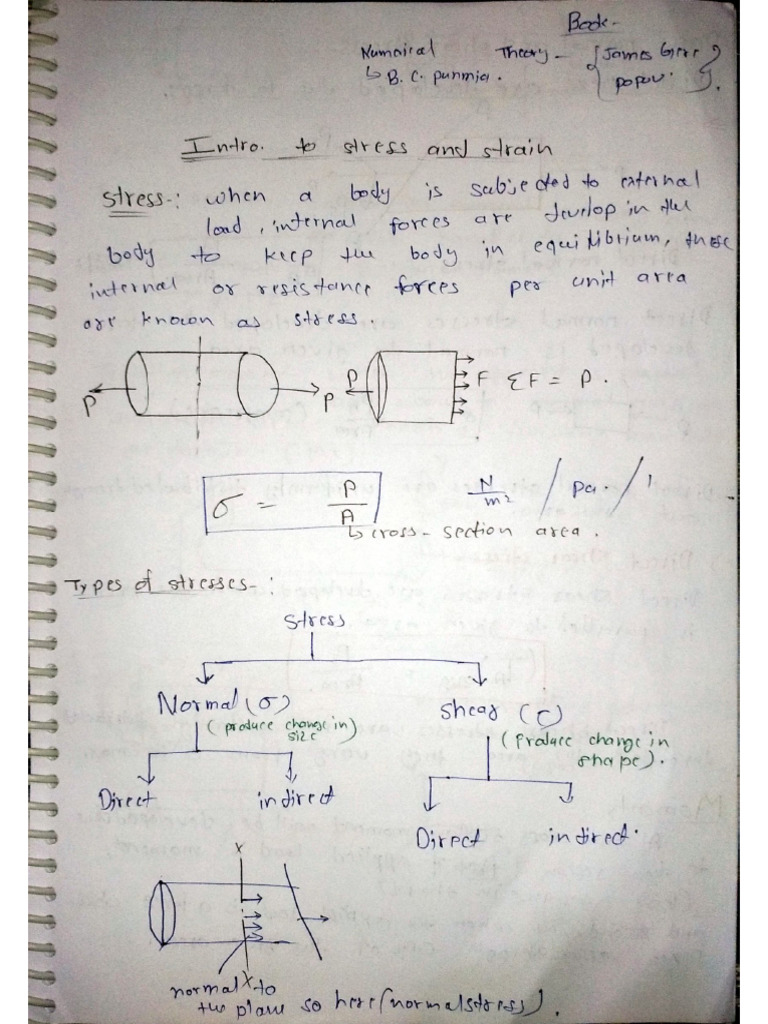 Book-
Numairal Theory - { James Gere
↳ B. C. punmia. popov. }.
Intro. to stress and strain
Stress-: when a body is subjected to external
load, internal forces are develop in the
body to keep the body in equilibrium, these
internal or resistance forces per unit area
are known as stress.
P P P F ΣF = P.
σ = P/A N/m² / pa. /
↳ cross-section area.
Types of stresses-:
Stress
Normal (σ) Shear (τ)
(produce change in size) (produce change in shape).
Direct indirect
Direct indirect.
x
x
normal to
the plane so here (normal stress).